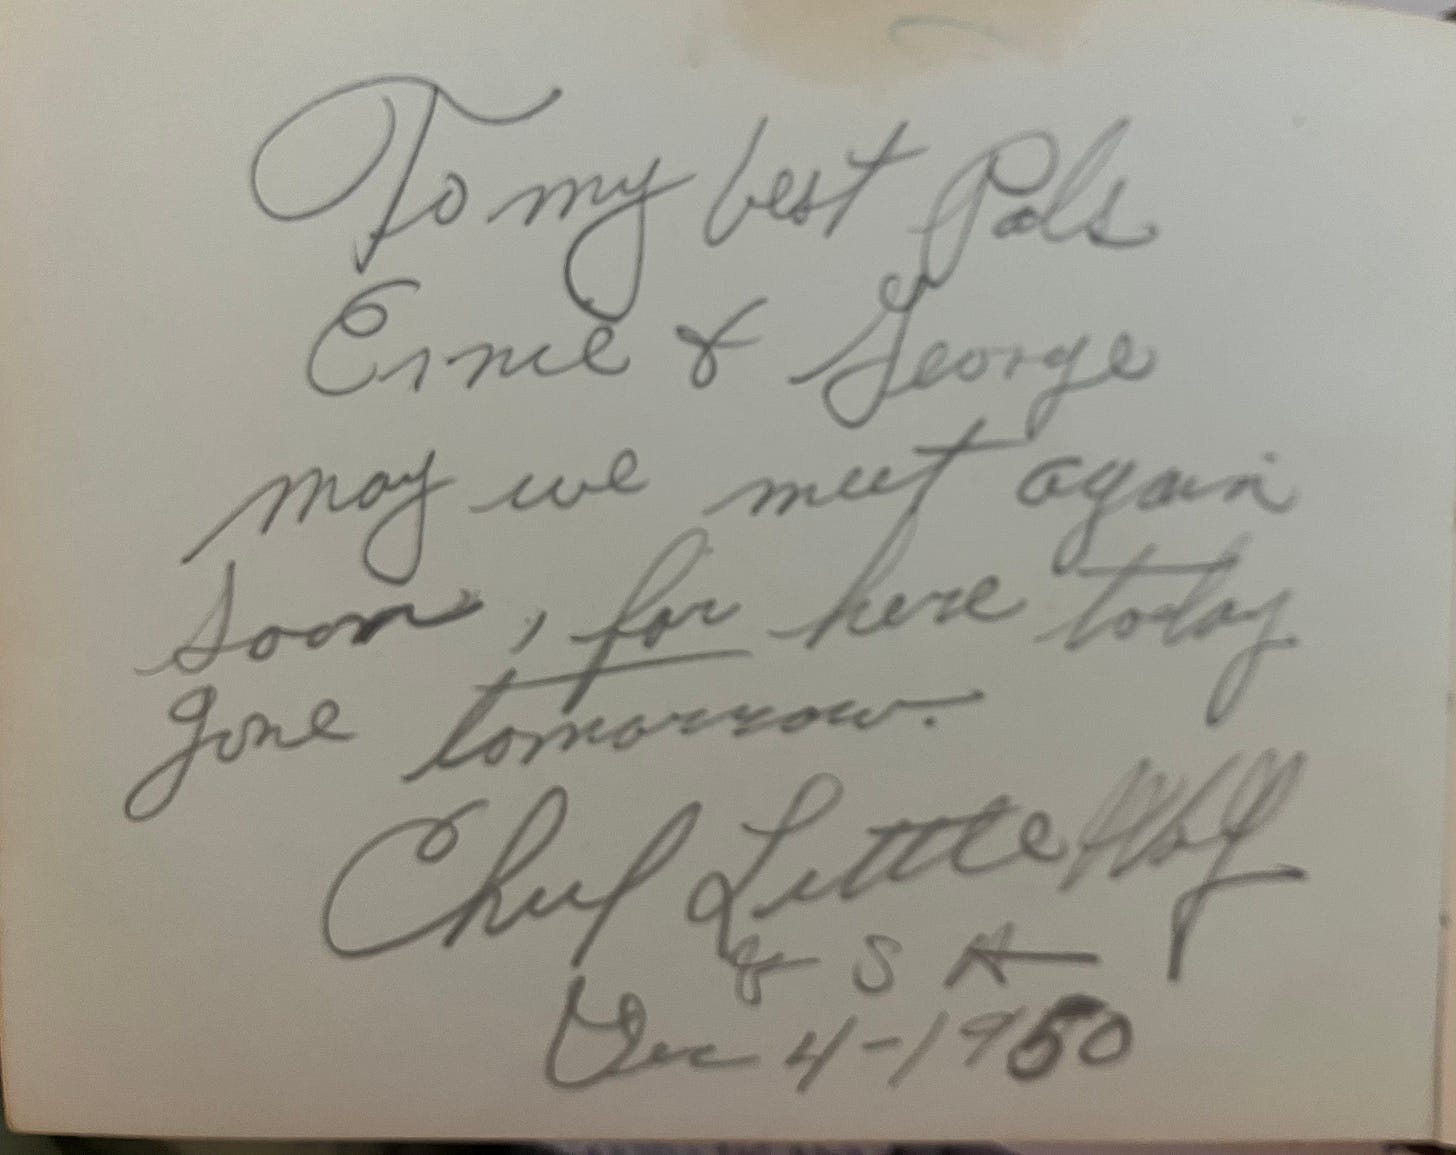 To my best Pals
Ernie & George
may we meet again
soon, for here today
gone tomorrow.
Chief Little Wolf
Dec 4-1950